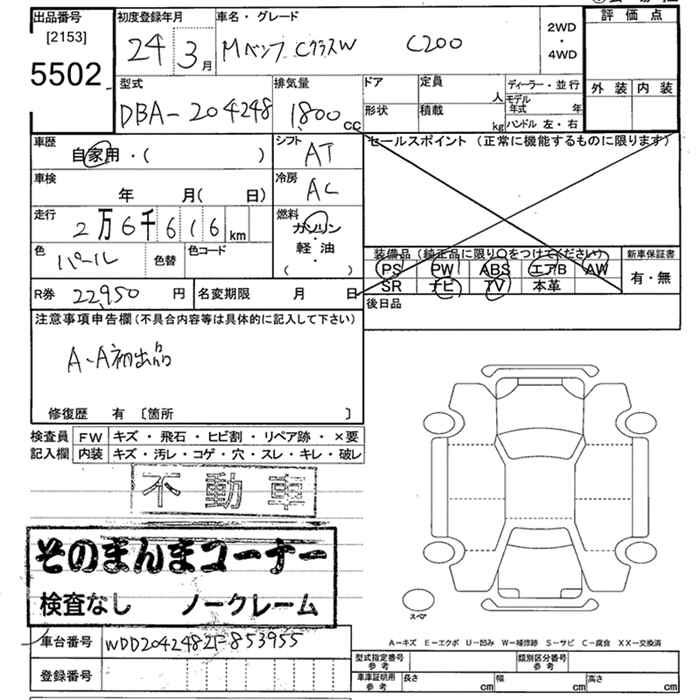 出品番号
[2153]
5502
初度登録年月
24 3月
車名・グレード
Mベンツ CクラスW C200
2WD
・
4WD
評価点
外装 内装
型式
DBA-204248
排気量
1800cc
ドア
形状
定員
人
積載
kg
ディーラー・並行
モデル年式 年
ハンドル 左・右
車歴
自家用・( )
シフト
AT
セールスポイント (正常に機能するものに限ります)
車検
年 月( 日)
冷房
AC
走行
2万6千616km
燃料
ガソリン
・
軽油
( )
色
パール
色替
色コード
装備品(純正品に限り○をつけてください)
PS PW ABS エアB AW
SR ナビ TV 本革
新車保証書
有・無
R券 22,950円
名変期限 月 日
後日品
注意事項申告欄(不具合内容等は具体的に記入して下さい)
A-A初出品
修復歴 有 〔箇所 〕
検査員 FW キズ・飛石・ヒビ割・リペア跡・×要
記入欄 内装 キズ・汚レ・コゲ・穴・スレ・キレ・破レ
不動車
そのまんまコーナー
検査なし ノークレーム
スペア
A-キズ E-エクボ U-凹み W-補修跡 S-サビ C-腐食 XX-交換済
車台番号 WDD2042482F853955
登録番号
型式指定番号
参考
類別区分番号
参考
車庫証明用
参考
長さ cm
幅 cm
高さ cm